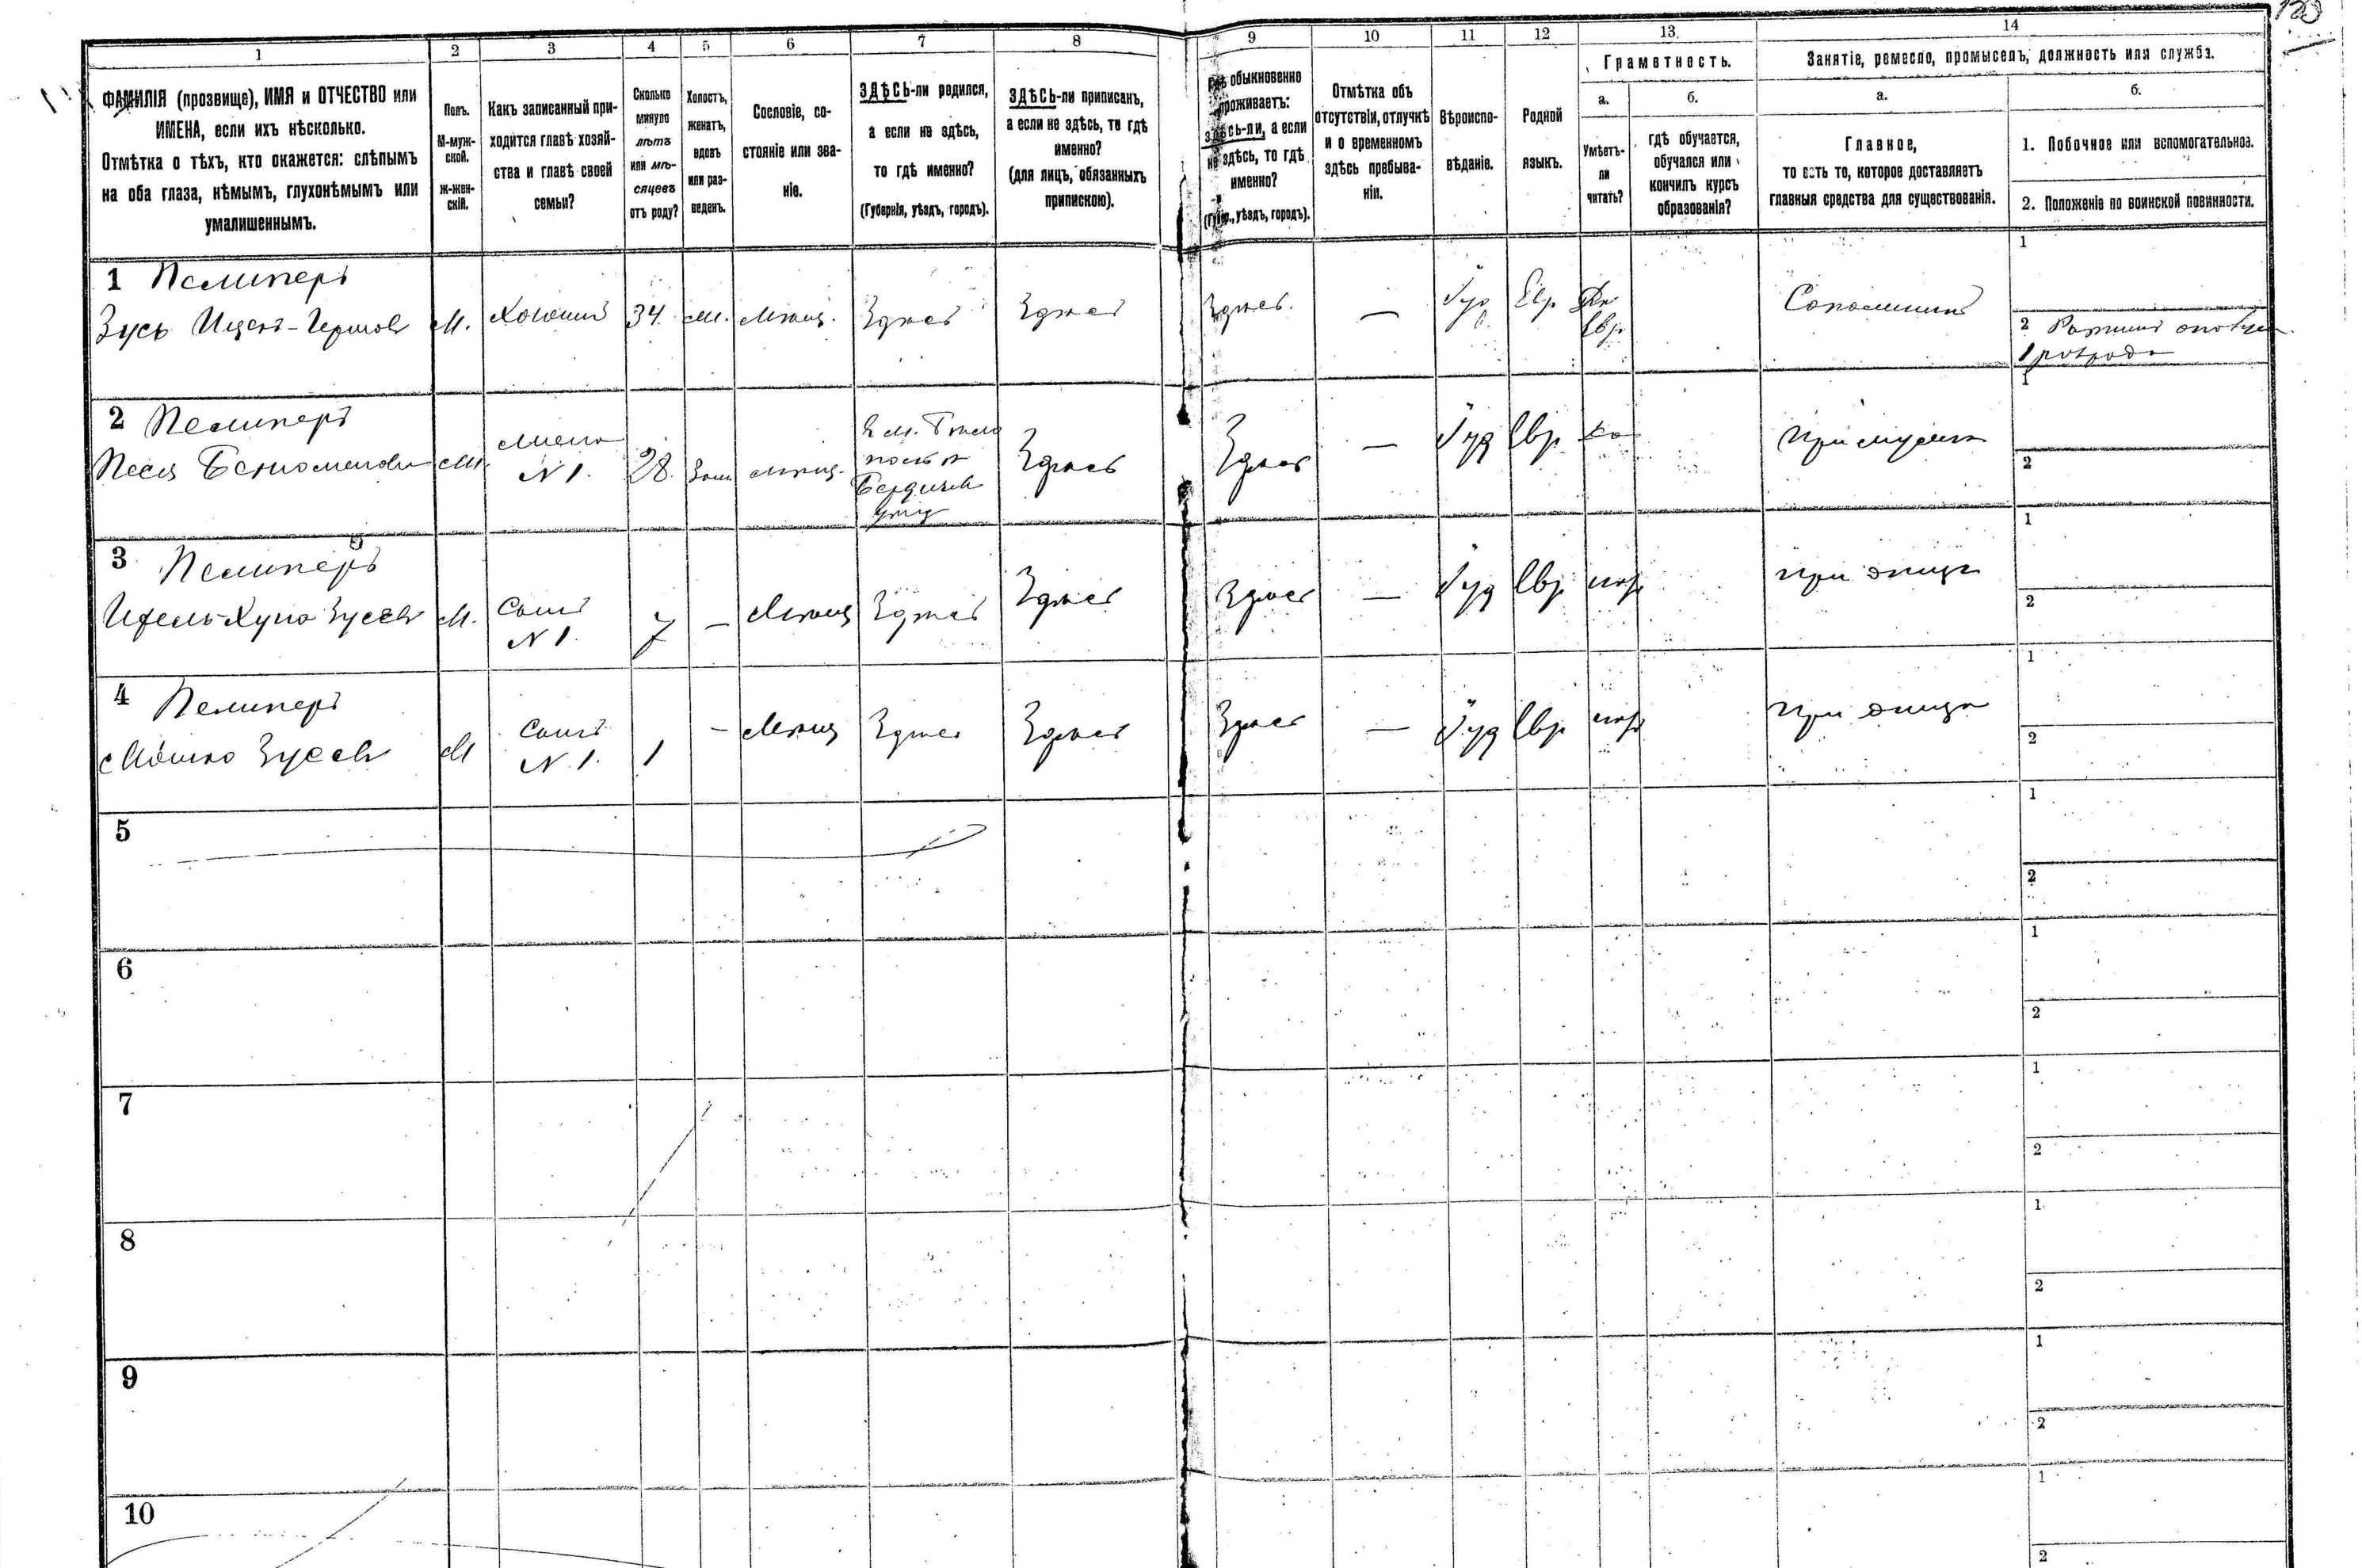 1
2
3
4
5
6
7
8
ФАМИЛІЯ (прозвище), ИМЯ и ОТЧЕСТВО или
ИМЕНА, если ихъ нѣсколько.
Отмѣтка о тѣхъ, кто окажется: слѣпымъ
на оба глаза, нѣмымъ, глухонѣмымъ или
умалишеннымъ.
Полъ.
М-муж-
ской.
ж-жен-
скій.
Какъ записанный при-
ходится главѣ хозяй-
ства и главѣ своей
семьи?
Сколько
минуло
лѣтъ
или мѣ-
сяцевъ
отъ роду?
Холостъ,
женатъ,
вдовъ
или раз-
веденъ.
Сословіе, со-
стояніе или зва-
ніе.
ЗДѢСЬ-ли родился,
а если не здѣсь,
то гдѣ именно?
(Губернія, уѣздъ, городъ).
ЗДѢСЬ-ли приписанъ,
а если не здѣсь, то гдѣ
именно?
(для лицъ, обязанныхъ
припискою).
9
10
11
12
13
14
Гдѣ обыкновенно
проживаетъ:
здѣсь-ли, а если
не здѣсь, то гдѣ
именно?
(Губ., уѣздъ, городъ).
Отмѣтка объ
отсутствіи, отлучкѣ
и о временномъ
здѣсь пребыва-
ніи.
Вѣроиспо-
вѣданіе.
Родной
языкъ.
Грамотность.
а.
Умѣетъ-
ли
читать?
б.
гдѣ обучается,
обучался или
кончилъ курсъ
образованія?
Занятіе, ремесло, промыселъ, должность или служба.
а.
Главное,
то есть то, которое доставляетъ
главныя средства для существованія.
б.
1. Побочное или вспомогательное.
2. Положеніе по воинской повинности.
1 Пелиперъ
Зусь
М.
34.
Здѣсь
Здѣсь
Здѣсь.
—
Іуд
Евр
1
2
2 Пелиперъ
Песя
N 1.
28.
Бердичев
Здѣсь
Здѣсь
—
Іуд
Евр
при мужѣ
1
2
3 Пелиперъ
Зусев
М.
Сынъ
N 1.
7
—
Мѣщ
Здѣсь
Здѣсь
Здѣсь
—
Іуд
Евр
при отцѣ
1
2
4 Пелиперъ
Мошко Зусев
М
Сынъ
N 1.
1
—
Мѣщ
Здѣсь
Здѣсь
Здѣсь
—
Іуд
Евр
при отцѣ
1
2
5
1
2
6
1
2
7
1
2
8
1
2
9
1
2
10
1
2